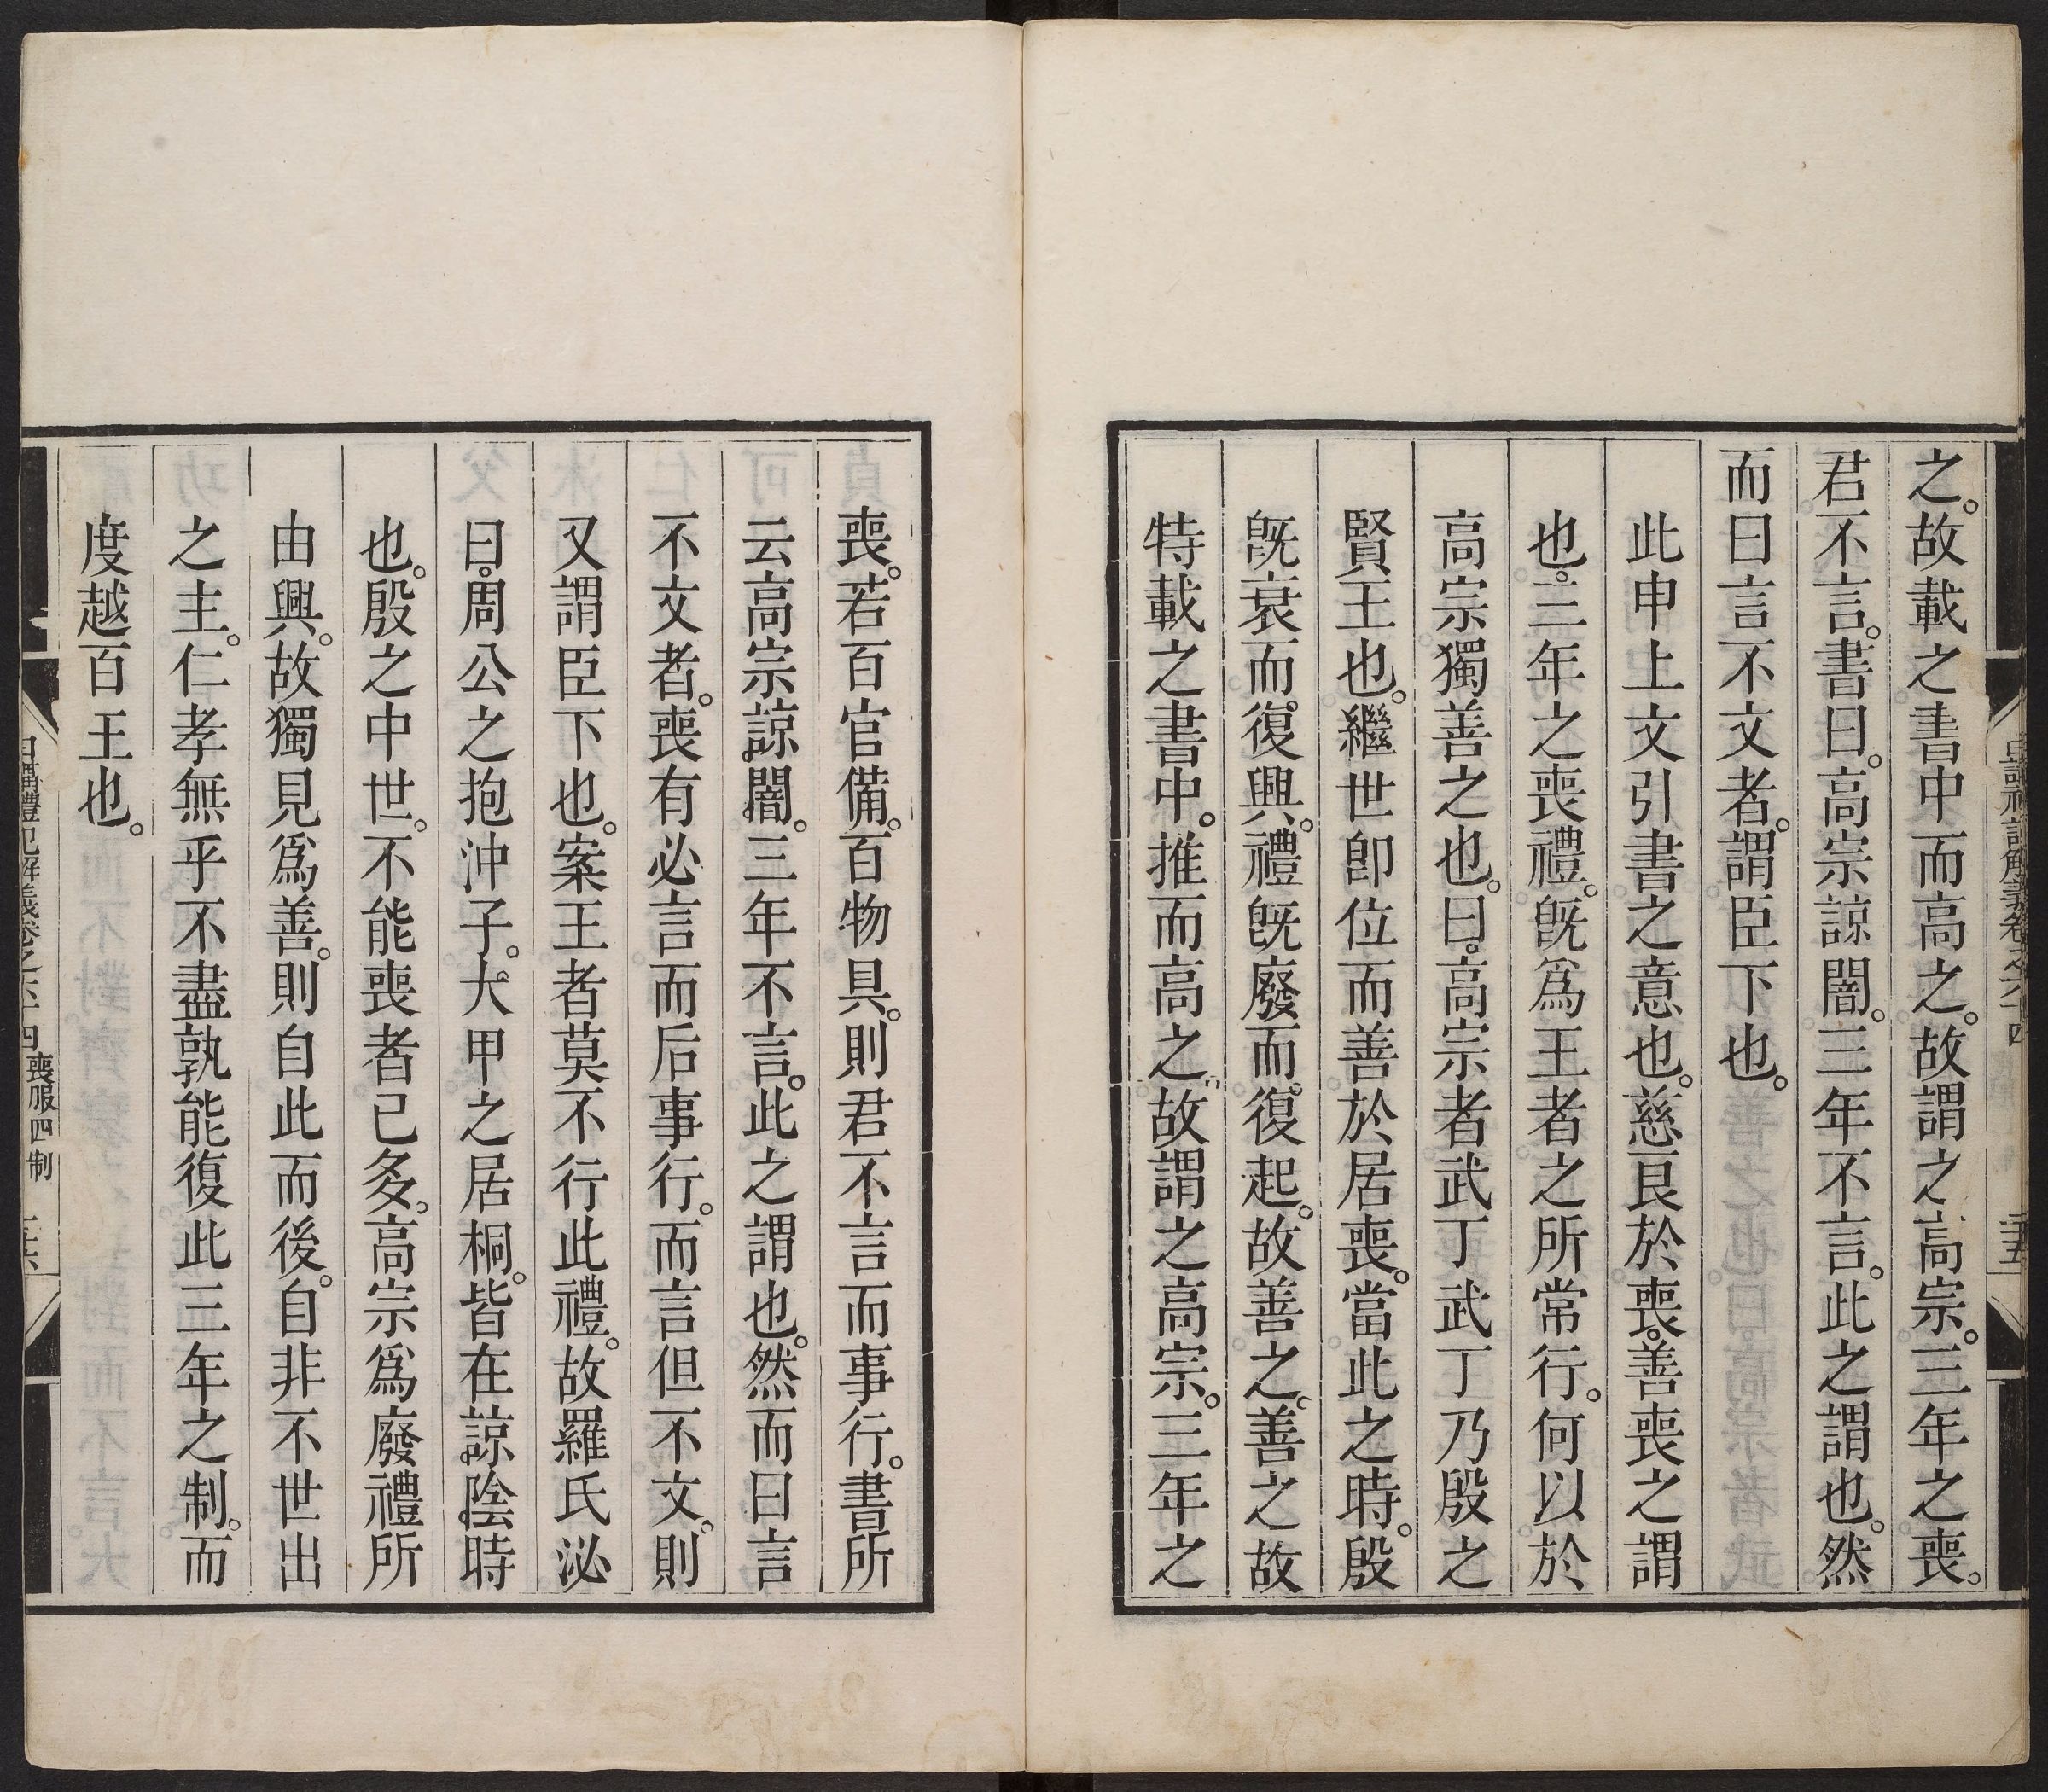 之。故載之書中而高之。故謂之高宗。三年之喪。
君不言。書曰。高宗諒闇。三年不言。此之謂也。然
而曰言不文者。謂臣下也。
此申上文引書之意也。慈良於喪。善喪之謂
也。三年之喪禮。旣爲王者之所常行。何以於
高宗獨善之也。曰。高宗者武丁武丁乃殷之
賢王也。繼世卽位而善於居喪。當此之時。殷
旣衰而。復興。禮旣廢而。復起。故善之。善之故
特載之書中。推而高之。故謂之高宗。三年之
喪。若百官備。百物具。則君不言而事行。書所
云高宗諒闇。三年不言。此之謂也。然而曰言
不文者。喪有必言而后事行。而言但不文。則
又謂臣下也。案王者莫不行此禮。故羅氏泌
曰。周公之抱沖子。太甲之居桐。皆在諒陰時
也。殷之中世。不能喪者已多。高宗爲廢禮所
由興。故獨見爲善。則自此而後。自非不世出
之主。仁孝無乎不盡孰能復此三年之制。而
度越百王也。
日講禮記解義卷之六十四 喪服四制